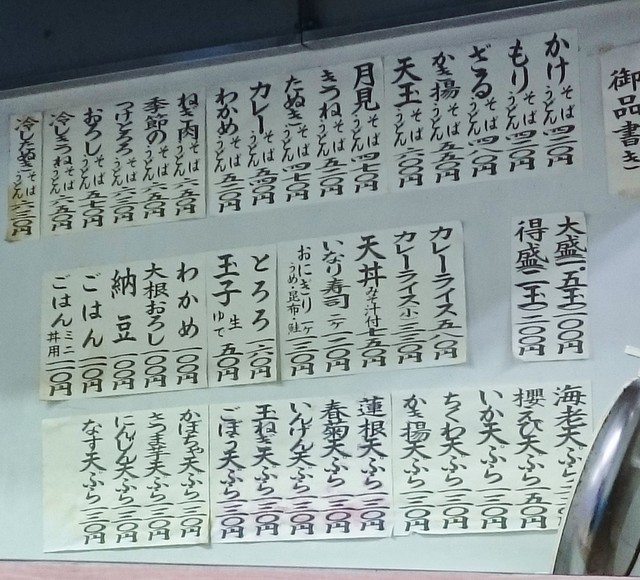 御品書き
かけそばうどん 四二〇円
もりそばうどん 四二〇円
ざるそばうどん 四六〇円
かき揚そばうどん 五五〇円
天玉そばうどん 六〇〇円
月見そばうどん 四七〇円
きつねそばうどん 五二〇円
たぬきそばうどん 四七〇円
カレーそばうどん 五四〇円
わかめそばうどん 五二〇円
ねぎ肉そばうどん 六五〇円
季節のそばうどん 六五〇円
つけとろろそばうどん 六二〇円
おろしそばうどん 五七〇円
冷しきつねそばうどん 六五〇円
冷したぬきそばうどん 六三〇円
大盛(一・五玉)一〇〇円
得盛(二玉)二〇〇円
カレーライス 五八〇円
カレーライス小 三三〇円
天丼みそ汁付 七五〇円
いなり寿司二ケ 二〇〇円
おにぎり一ケ 一三〇円
うめ・昆布・鮭
とろろ 一六〇円
玉子 生ゆで 五〇円
わかめ 一〇〇円
大根おろし 一〇〇円
納豆 一〇〇円
ごはん 二〇〇円
ごはんミニ丼用 一〇〇円
海老天ぷら
櫻えび天ぷら 一五〇円
いか天ぷら 一三〇円
ちくわ天ぷら 一三〇円
かき揚天ぷら 一三〇円
蓮根天ぷら 一三〇円
春菊天ぷら 一三〇円
いんげん天ぷら 一三〇円
玉ねぎ天ぷら 一三〇円
ごぼう天ぷら 一三〇円
かぼちゃ天ぷら 一三〇円
さつま芋天ぷら 一三〇円
にんじん天ぷら 一三〇円
なす天ぷら 一三〇円